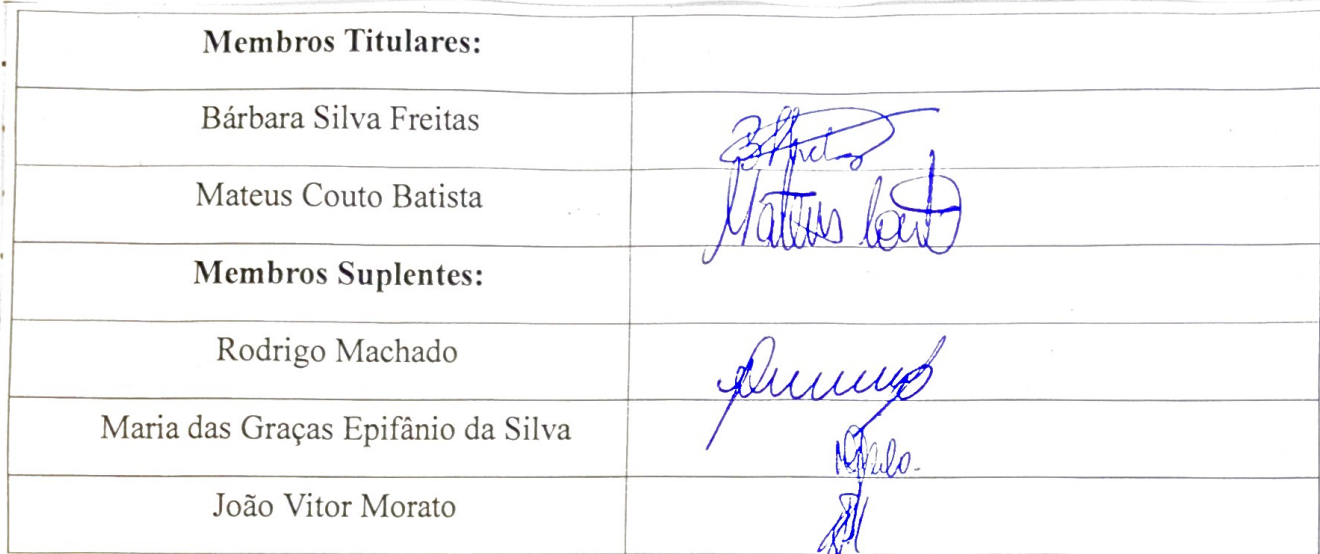 Membros Titulares:
Bárbara Silva Freitas
Mateus Couto Batista
Mateus Cout
Membros Suplentes:
Rodrigo Machado
Maria das Graças Epifânio da Silva
João Vitor Morato